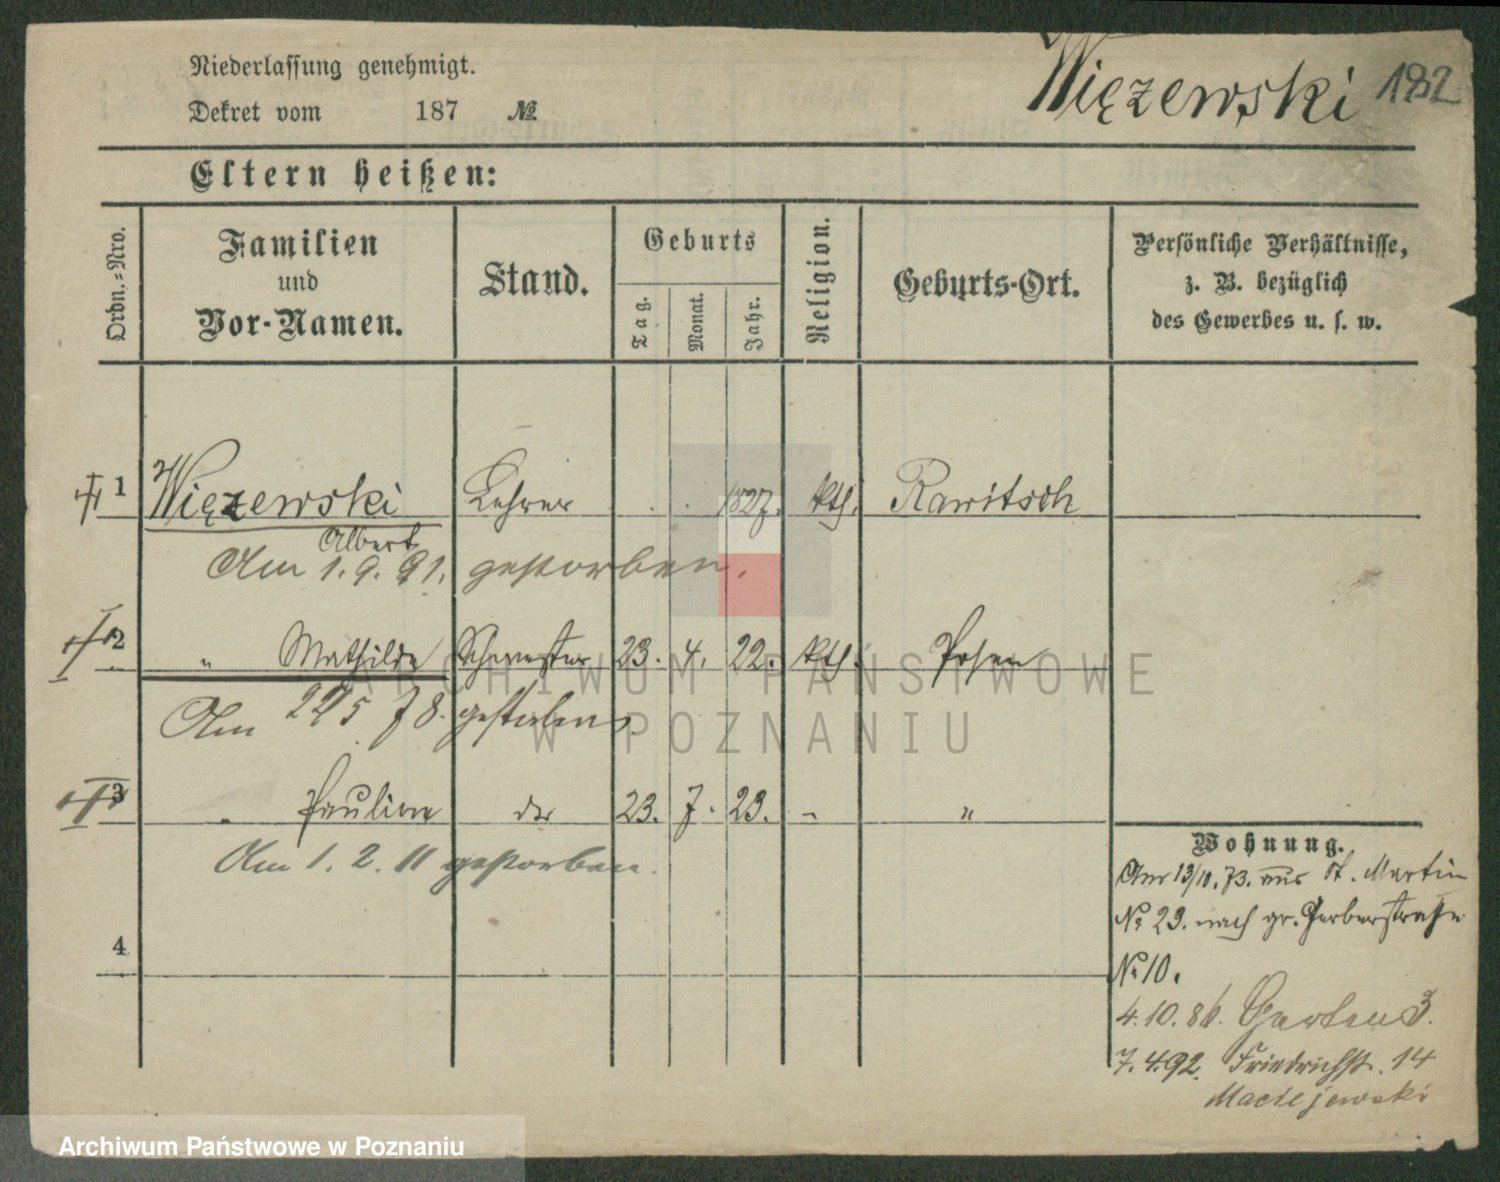 Niederlassung genehmigt.
Więzewski 182
Dekret vom 187 №
Eltern heißen:
Ordn.-Nro.
Familien
und
Vor-Namen.
Stand.
Geburts
Tag.
Monat.
Jahr.
Religion.
Geburts-Ort.
Persönliche Verhältnisse,
z. B. bezüglich
des Gewerbes u. s. w.
1 Więzewski Lehrer . . 1827. kth. Rawitsch
Albert
Am 1. 9. 91. gestorben.
2 " Mathilde Schwester 23. 4. 22. kth. Posen
Am 22/5 78. gestorben
3 " Pauline do 23. 7. 23. " "
Am 1. 2. 11 gestorben.
4
Wohnung.
Am 13/10. 73. aus St. Martin
№ 23. nach gr. Gerberstraße
№ 10.
4. 10. 86. Garten 3.
7. 4. 92. Friedrichstr. 14
Maciejewski
ARCHIWUM PAŃSTWOWE
W POZNANIU
Archiwum Państwowe w Poznaniu